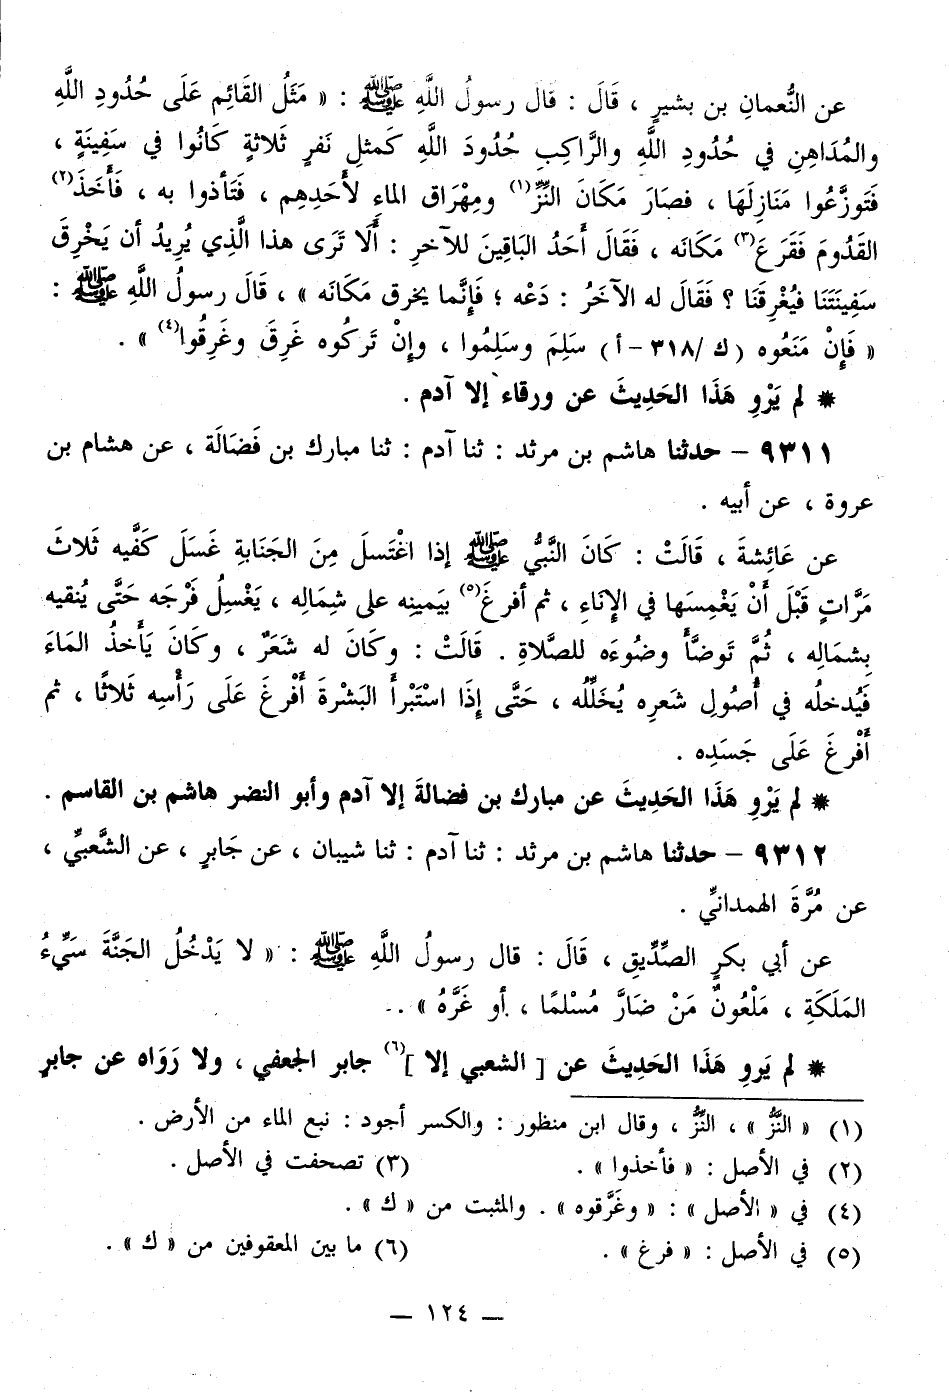 عن النُّعمانِ بن بشيرٍ ، قَالَ : قال رسولُ اللَّهِ ﷺ : « مَثَلُ القَائِم عَلَى حُدُودِ اللَّهِ
والمُدَاهِنِ في حُدُودِ اللَّهِ والرَّاكِبِ حُدُودَ اللَّهِ كَمثلِ نَفرٍ ثَلاثةٍ كَانُوا في سَفِينَةٍ ،
فَتَوزَّعُوا مَنَازِلَهَا ، فصَارَ مَكَانَ النِّزِّ(١) ومِهْرَاق الماءِ لأَحَدِهِم ، فَتَأذوا به ، فَأَخَذَ(٢)
القَدُومَ فَقَرَعَ(٣) مَكَانَه ، فَقَالَ أَحَدُ البَاقِينَ للآخرِ : أَلَا تَرَى هذا الَّذِي يُرِيدُ أن يَخْرِقَ
سَفِينَتَنَا فَيُغْرِقَنَا ؟ فَقَالَ له الآخَرُ : دَعْه ؛ فَإِنَّما يخرق مَكَانَه » ، قَالَ رسولُ اللَّهِ ﷺ :
« فَإِنْ مَنَعُوه (ك /٣١٨ - أ) سَلِمَ وسَلِمُوا ، وإِنْ تَركُوه غَرِقَ وغَرِقُوا(٤) » .
* لم يَرْوِ هَذَا الحَدِيثَ عن ورقاء إلا آدم .
٩٣١١ - حدثنا هاشم بن مرثد : ثنا آدم : ثنا مبارك بن فَضَالَة ، عن هشام بن
عروة ، عن أبيه .
عن عَائِشةَ ، قَالَتْ : كَانَ النَّبيُّ ﷺ إذا اغْتَسلَ مِنَ الجَنَابةِ غَسَلَ كَفَّيه ثَلاثَ
مَرَّاتٍ قَبْلَ أَنْ يَغْمِسَها في الإِنَاءِ ، ثم أفرغَ(٥) بيَمينِه على شِمَالِه ، يَغْسِلُ فَرْجَه حَتَّى يُنقيه
بِشمَالِه ، ثُمَّ تَوضَّأَ وضُوءَه للصَّلاةِ . قَالَتْ : وكَانَ له شَعَرٌ ، وكَانَ يَأخذُ المَاءَ
فَيُدخلُه في أُصُولِ شعَرِه يُخَلِّلُه ، حَتَّى إِذَا اسْتَبْرأَ البَشْرةَ أَفْرغَ عَلَى رَأْسِه ثَلاثًا ، ثم
أَفْرغَ عَلَى جَسَدِه .
* لم يَرْوِ هَذَا الحَدِيثَ عن مبارك بن فضالةَ إلا آدم وأبو النضر هاشم بن القاسم .
٩٣١٢ - حدثنا هاشم بن مرثد : ثنا آدم : ثنا شيبان ، عن جَابرٍ ، عن الشَّعبيِّ ،
عن مُرَّةَ الهمدانيِّ .
عن أبي بكرٍ الصِّدِّيقِ ، قَالَ : قال رسولُ اللَّهِ ﷺ : « لا يَدْخُلُ الجَنَّةَ سَيِّءُ
المَلَكَةِ ، مَلْعُونٌ مَنْ ضَارَّ مُسْلمًا ، أو غَرَّهُ » .
* لم يَروِ هَذَا الحَدِيثَ عن [ الشعبي إلا ](٦) جابر الجعفي ، ولا رَوَاه عن جابرٍ
(١) « النَّزُّ » ، النِّزُّ ، وقال ابن منظور : والكسر أجود : نبع الماء من الأرض .
(٢) في الأصل : « فأخذوا » .
(٣) تصحفت في الأصل .
(٤) في « الأصل » : « وغَرَّقوه » . والمثبت من « ك » .
(٥) في الأصل : « فرغ » .
(٦) ما بين المعقوفين من « ك » .
— ١٢٤ —